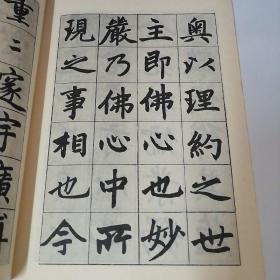 奥以理約之世
主即佛心也妙
嚴乃佛心中所
現之事相也今
重二家宇廣